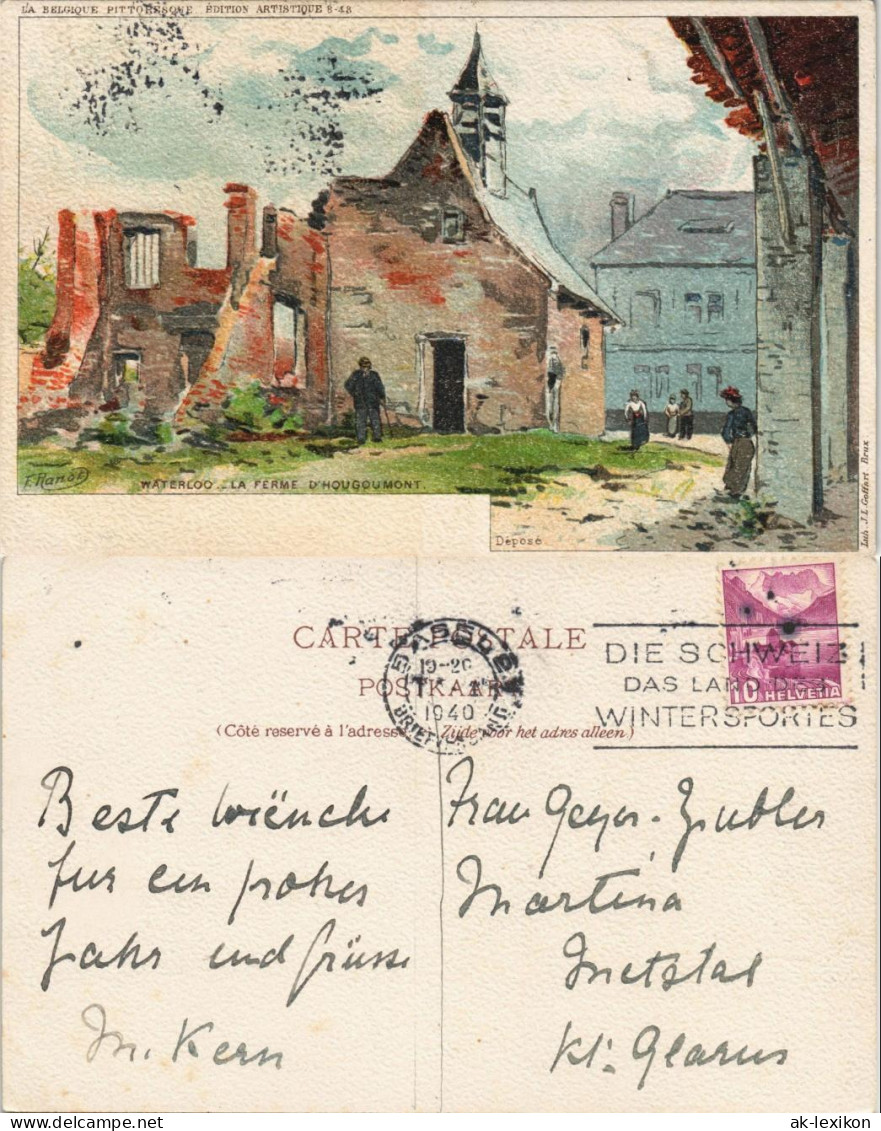 LA BELGIQUE PITTORESQUE ÉDITION ARTISTIQUE 8-48
F. Ranot
WATERLOO _ LA FERME D'HOUGOUMONT.
Déposé
Lith. J. L. Goffart Brux
CARTE POSTALE
POSTKAART
(Côté reservé à l'adresse. Zijde voor het adres alleen.)
19-20
1940
DIE SCHWEIZ
DAS LAND DES
WINTERSPORTES
10 HELVETIA
Beste wiënche
fur ein frohes
Jahr und grüsse
M. Kern
Frau Geyer-Zubler
Martina
Netstal
kt. Glarus
ak-lexikon